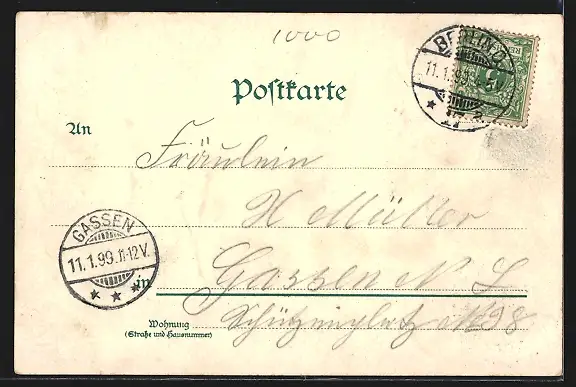 1000
Postkarte
BERLIN
11.1.99.
An
Fräulein
H Müller
GASSEN
11.1.99.11-12V.
in
Gassen N L
Wohnung
(Straße und Hausnummer)
Schützenplatz No 98